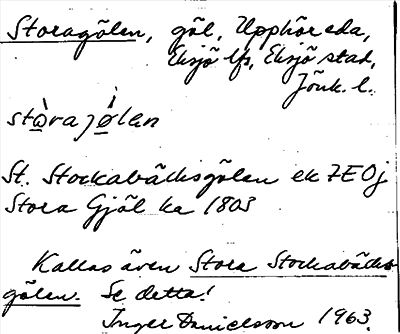 Storagölen, göl, Upphöreda,
Eksjö lfs, Eksjö stad,
Jönk. l.
stòrajö́len
St. Stockabäcksgölen ek 7EOj
Stora Gjöl ka 1803
Kallas även Stora Stockabäcks-
gölen. Se detta!
Inger Danielsson 1963